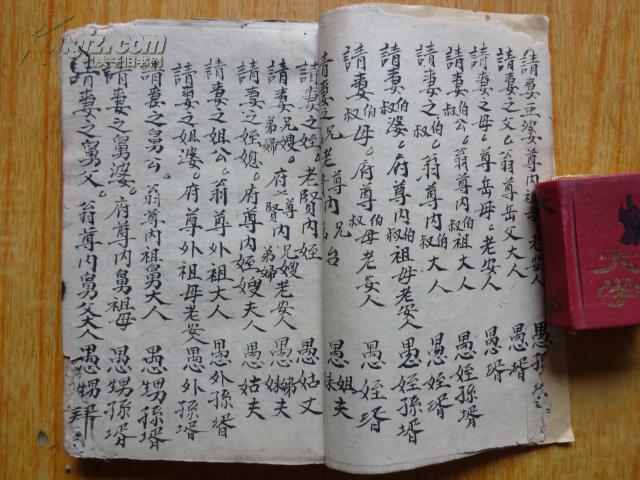 請妻亞婆 尊內祖母老安人 愚孫壻
請妻之父 翁尊岳父大人 愚壻
請妻之母 尊岳母老安人 愚壻
請妻伯叔公 翁尊內伯叔祖大人 愚姪孫壻
請妻之伯叔 翁尊內伯叔大人 愚姪壻
請妻伯叔婆 府尊內伯叔祖母老安人 愚姪孫壻
請妻伯叔母 府尊內伯叔母老安人 愚姪壻
請妻之兄 老 尊內兄 台 愚姐妹夫
請妻之姪 老賢內姪 愚姑丈
請妻兄嫂弟婦 府之尊賢內兄嫂弟婦老安人 愚姊妹夫
請妻之姪媳 府尊內姪嫂夫人 愚姑夫
請妻之姐公 翁尊外祖大人 愚外孫壻
請妻之姐婆 府尊外祖母老安人 愚外孫壻
請妻之舅公 翁尊內祖舅大人 愚甥孫壻
請妻之舅婆 府尊內舅祖母 愚甥孫壻
請妻之舅父 翁尊內舅父大人 愚甥
大学
kongfz.com
孔夫子旧书网